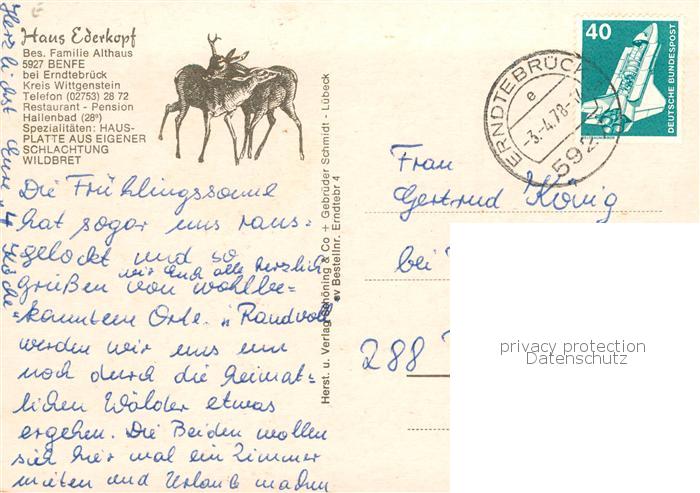 Haus Ederkopf
Bes. Familie Althaus
5927 BENFE
bei Erndtebrück
Kreis Wittgenstein
Telefon (02753) 28 72
Restaurant - Pension
Hallenbad (28°)
Spezialitäten: HAUS-
PLATTE AUS EIGENER
SCHLACHTUNG
WILDBRET
Die Frühlingssonne
hat sogar uns raus=
gelockt und so
wir Euch alle herzlich
grüßen von wohlbe=
=kanntem Orte. "Randvoll"
werden wir uns nun
noch durch die heimat=
lichen Wälder etwas
ergehen. Die Beiden wollen
sich hier mal ein Zimmer
mieten und Urlaub machen
Herzlichst Eure 4
Herst. u. Verlag Schöning & Co + Gebrüder Schmidt - Lübeck
Bestellnr. Erndtebr 4
40
DEUTSCHE BUNDESPOST
ERNDTEBRÜCK
e
-3.-4.78-
592
Frau
Gertrud König
bei
288
privacy protection
Datenschutz